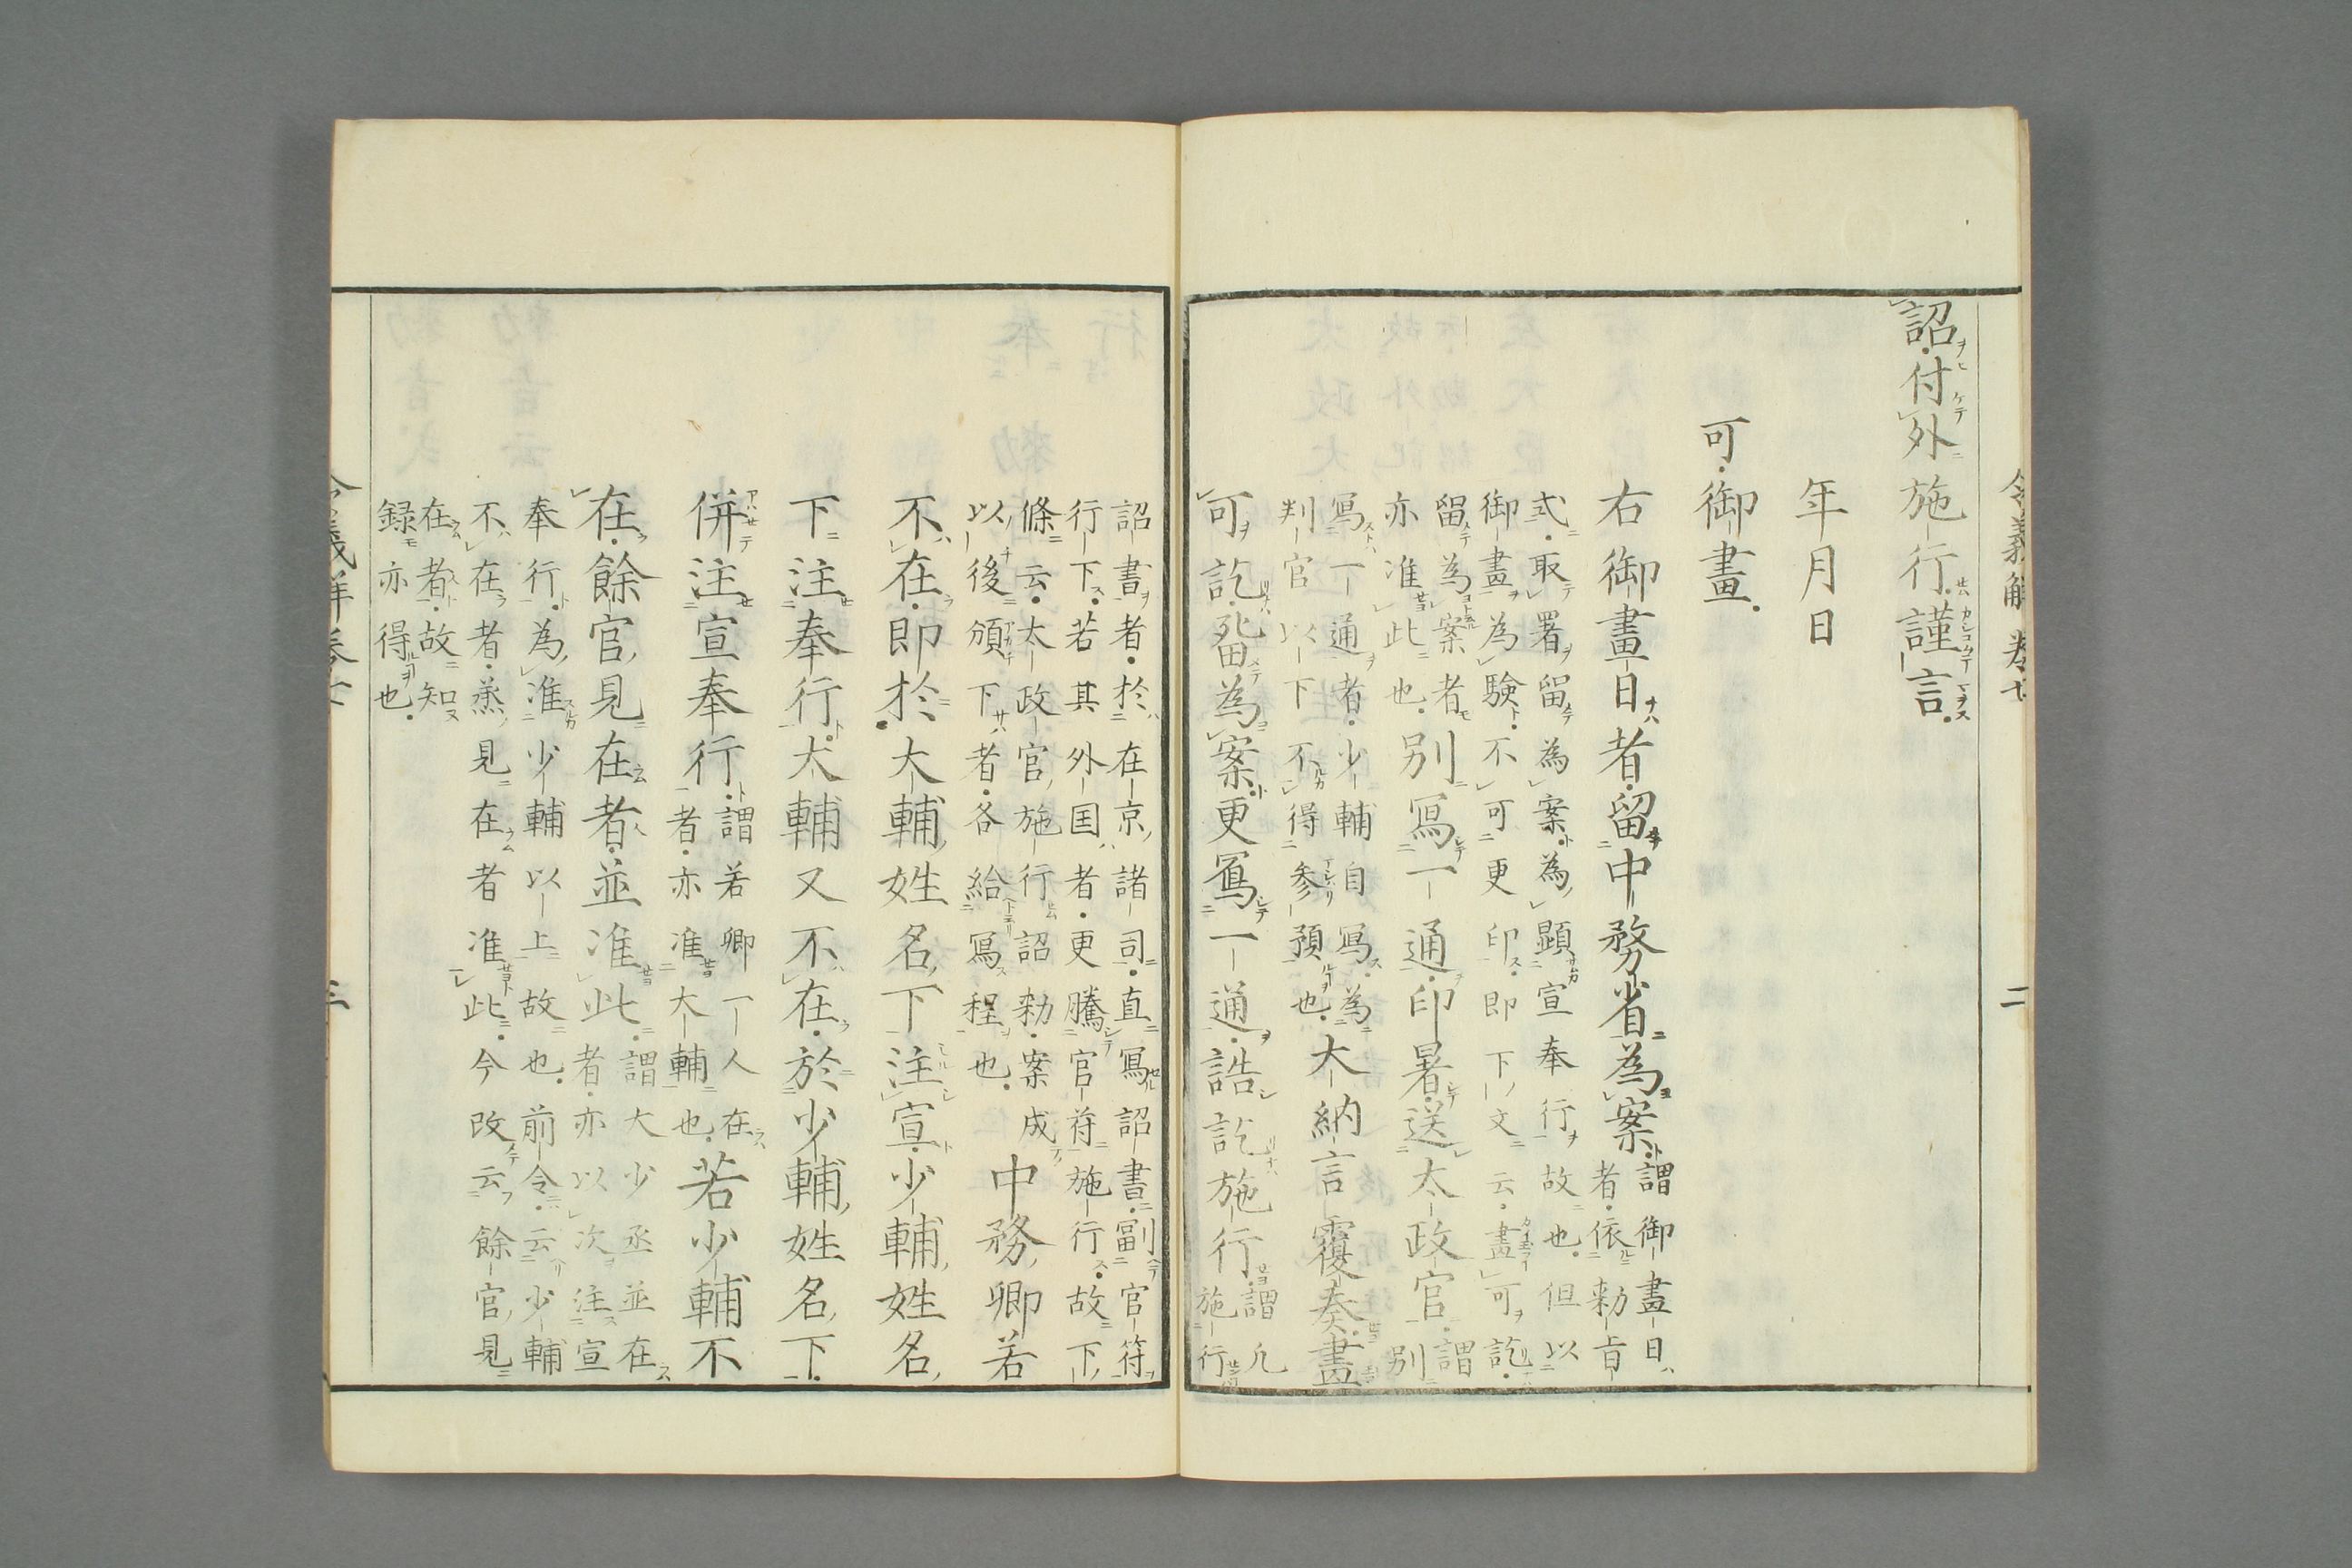 令義解 卷七 二
詔付外施行謹言
年月日
可御畫
右御畫日者留中務省為案謂御畫日
者依勅旨
式取署留為案為顯宣奉行故也但以
御畫為驗不可更印即下文云畫可訖
留為案者
亦准此也別寫一通印署送太政官謂
別
寫一通者少輔自寫為
判官以下不得参預也大納言覆奏畫
可訖留為案更寫一通誥訖施行謂凡
施行
詔書者於在京諸司直寫詔書副官符
行下若其外国者更騰官符施行故下
條云太政官施行詔勅案成
以後頒下者各給寫程也中務卿若
不在即於大輔姓名下注宣少輔姓名
下注奉行大輔又不在於少輔姓名下
併注宣奉行謂若卿一人在
者亦准大輔也若少輔不
在餘官見在者並准此謂大少丞並在
者亦以次注宣
奉行為准少輔以上故也前令云少輔
不在者丞見在者准此今改云餘官見
在者故知
録亦得也
令義解卷七 三